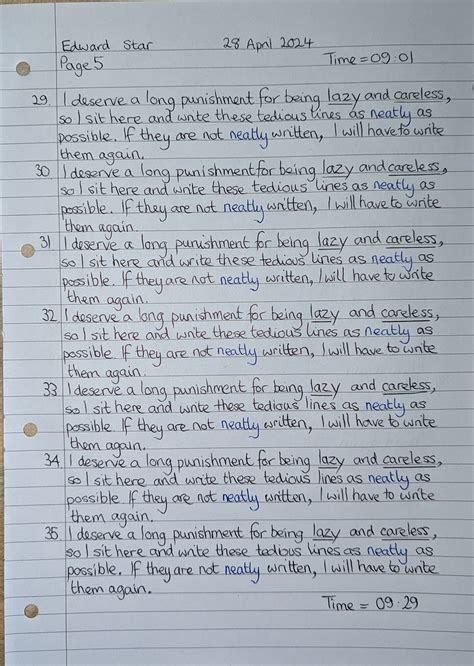 Edward Star 28 April 2024
Page 5 Time = 09:01
29. I deserve a long punishment for being lazy and careless,
so I sit here and write these tedious lines as neatly as
possible. If they are not neatly written, I will have to write
them again.
30 I deserve a long punishment for being lazy and careless,
so I sit here and write these tedious lines as neatly as
possible. If they are not neatly written, I will have to write
them again.
31 I deserve a long punishment for being lazy and careless,
so I sit here and write these tedious lines as neatly as
possible. If they are not neatly written, I will have to write
them again.
32. I deserve a long punishment for being lazy and careless,
so I sit here and write these tedious lines as neatly as
possible. If they are not neatly written, I will have to write
them again.
33 I deserve a long punishment for being lazy and careless,
so I sit here and write these tedious lines as neatly as
possible. If they are not neatly written, I will have to write
them again.
34. I deserve a long punishment for being lazy and careless,
so I sit here and write these tedious lines as neatly as
possible. If they are not neatly written, I will have to write
them again.
35. I deserve a long punishment for being lazy and careless,
so I sit here and write these tedious lines as neatly as
possible. If they are not neatly written, I will have to write
them again.
Time = 09:29